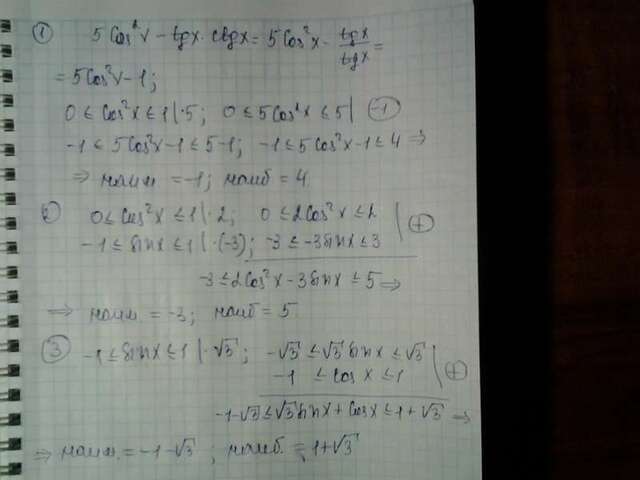 ① 5cos²x - tgx · ctgx = 5cos²x - tgx/tgx =
= 5cos²x - 1;
0 ≤ cos²x ≤ 1 | ·5; 0 ≤ 5cos²x ≤ 5 | (-1)
-1 ≤ 5cos²x - 1 ≤ 5 - 1; -1 ≤ 5cos²x - 1 ≤ 4 ⇒
⇒ наим = -1; наиб = 4
② 0 ≤ cos²x ≤ 1 | · 2; 0 ≤ 2cos²x ≤ 2
-1 ≤ sinx ≤ 1 | · (-3); -3 ≤ -3sinx ≤ 3 | (+)
-3 ≤ 2cos²x - 3sinx ≤ 5 ⇒
⇒ наим. = -3; наиб = 5
③ -1 ≤ sinx ≤ 1 | · √3; -√3 ≤ √3 sinx ≤ √3
-1 ≤ cosx ≤ 1 | (+)
-1-√3 ≤ √3 sinx + cosx ≤ 1 + √3 ⇒
⇒ наим. = -1-√3; наиб. = 1+√3